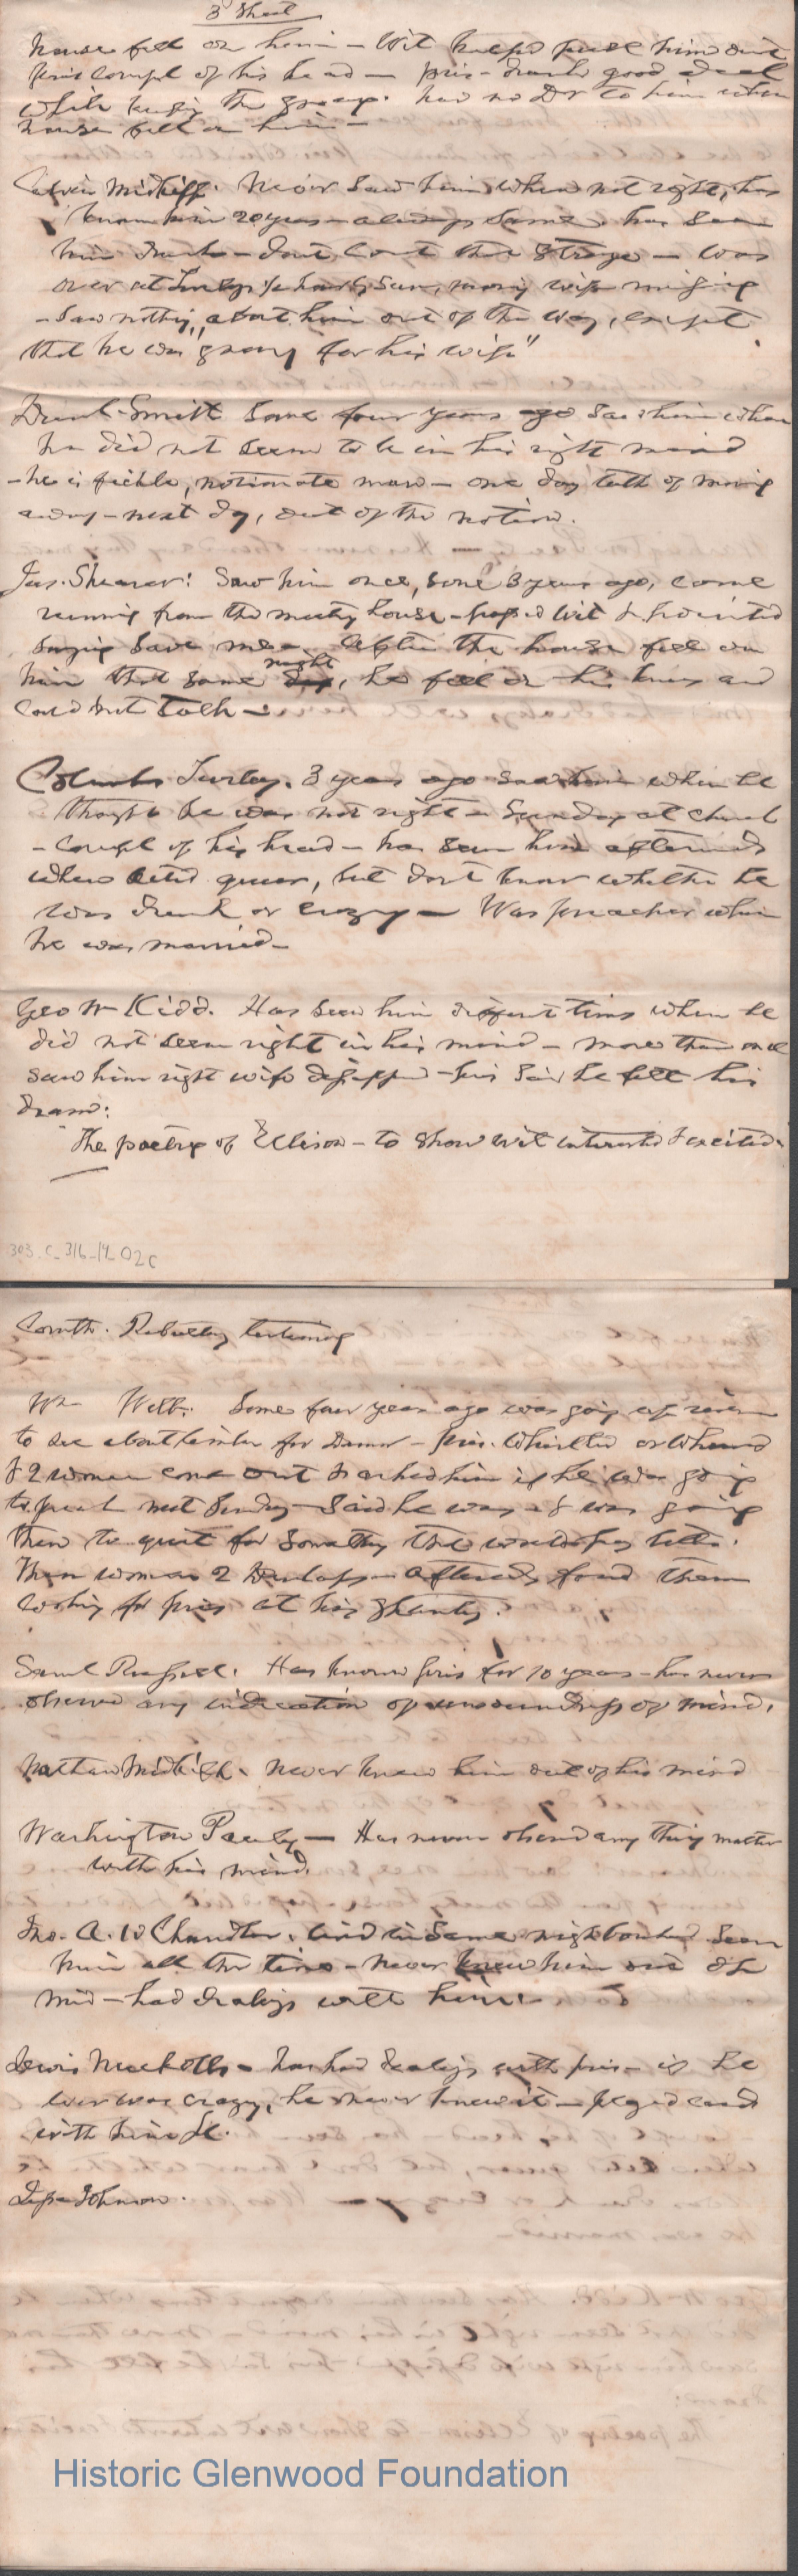 3d Sheet
house fell on him – Wit helped pull him out
pris compl of his head – pris – drank good deal
while keepg the grocery. had no Dr to him when
house fell on him –
Calvin Midkiff. Never saw him when not right, has
known him 20 years – always same. has seen
him drunk – dont count that strange – was
over at Sunday, morng wife missing
– Saw nothing about him out of the way, except
that he was "grievg for his wife"
Smith Some four years ago saw him when
he did not seem to be in his right mind
– he is fickle, notionate man – one day talk of moving
away – next day, out of the notion.
Jas. Shearer: Saw him once, some 3 years ago, come
running from the meeting house – Wit &
saying save me – After the house fell on
him that same night, he fell on his knees and
could not talk –
Columbs Turley. 3 years ago saw him when he
thought he was not right – Sunday at church
– compl of his head – has seen him afterwards
when acted queer, but dont know whether he
was drunk or crazy – Was preacher when
he was married –
Geo W Kidd. Has seen him different times when he
did not seem right in his mind – more than once
saw him night wife disappd – pris said he felt his
dram:
The poetry of Ellison – to show wit interested & excited.
303_C_316_19_02c
Comth. Rebuttg testimony
Wm Webb. Some four years ago was going up river
to see about timber for Damn – pris. whistled or
& 2 women come out & asked him if he was going
to preach next Sunday – Said he was – & was going
then to quit for somethg that would pay better.
Them women 2 – afterwards found them
cooking for pris at his shanty.
Saml Russel. Has known pris for 10 years – has never
observed any indication of unsoundness of mind.
Nathan Midkiff. Never knew him out of his mind
Washington Pauly – Has never observd any thing matter
with his mind.
Jno. A. W Chandler. lived in same neighborhood seen
him all the time – never knew him out of
mind – had dealings with him
Lewis Nuckolls – has had dealings with pris – if he
ever was crazy, he never knew it – played cards
with him &c.
Johnson.
Historic Glenwood Foundation